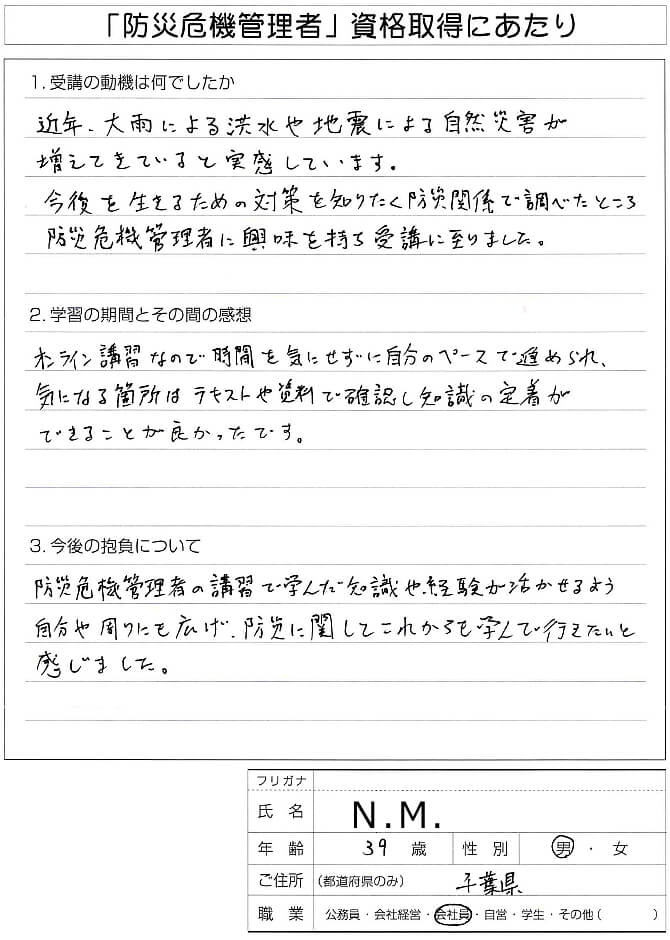 「防災危機管理者」資格取得にあたり
1. 受講の動機は何でしたか
近年、大雨による洪水や地震による自然災害が
増えてきていると実感しています。
今後を生きるための対策を知りたく防災関係で調べたところ
防災危機管理者に興味を持ち受講に至りました。
2. 学習の期間とその間の感想
オンライン講習なので時間を気にせずに自分のペースで進められ、
気になる箇所はテキストや資料で確認し知識の定着が
できることが良かったです。
3. 今後の抱負について
防災危機管理者の講習で学んだ知識や経験が活かせるよう
自分や周りにも広げ、防災に関してこれからも学んで行きたいと
感じました。
フリガナ
氏 名 N.M.
年 齢 39 歳 性 別 男 ・ 女
ご住所 (都道府県のみ) 千葉県
職 業 公務員・会社経営・会社員・自営・学生・その他( )